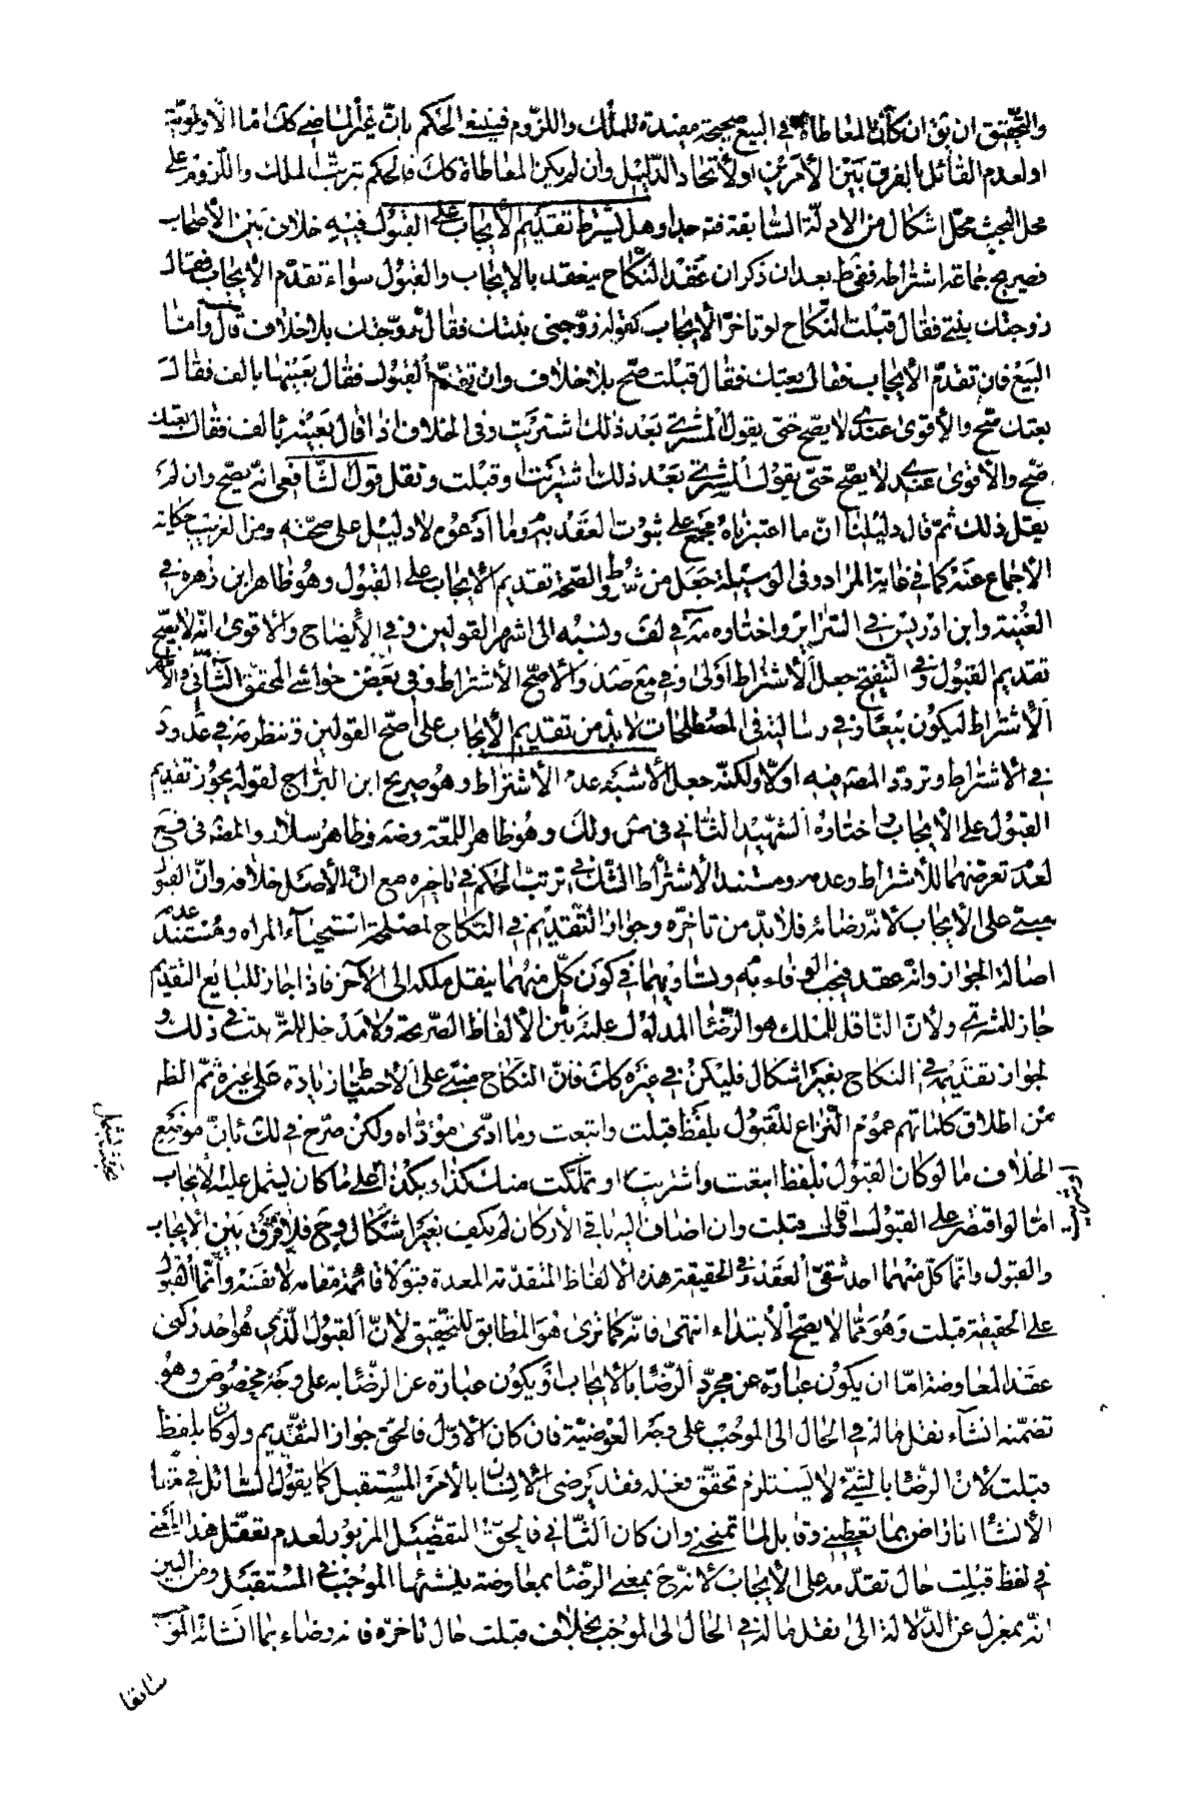 والتحقيق ان يق ان كان المعاطاة في البيع صحيحة مفيدة للملك واللزوم فينبغي الحكم بان غير الماضي كك اما الاولوية
او لعدم القائل بالفرق بين الأمرين او لاتحاد الدليل وان لم يكن المعاطاة كك فالحكم بترتب الملك واللزوم على
محل البحث محل اشكال من الادلة السابقة فته جدا وهل يشترط تقديم الأيجاب على القبول فيه خلاف بين الأصحاب
فصريح جماعة اشتراطه ففي ط بعد ان ذكر ان عقد النكاح ينعقد بالايجاب والقبول سواء تقدم الأيجاب فقال
زوجتك بنتي فقال قبلت النكاح لو تاخر الأيجاب كقوله زوجني بنتك فقال زوجتك بلا خلاف قال واما
البيع فان تقدم الأيجاب فقال بعتك فقال قبلت صح بلا خلاف وان تقدم القبول فقال بعنيها بالف فقال
بعتك صح والأقوى عندي لا يصح حتى يقول المشتري بعد ذلك اشتريت وفي الخلاف اذا قال بعنيه بالف فقال بعتك
صح والاقوى عندي لا يصح حتى يقول المشتري بعد ذلك اشتريت او قبلت ونقل قول الشافعي انه يصح وان لم
يقل ذلك ثم قال دليلنا ان ما اعتبرناه مجمع على ثبوت العقد به وما ادعوه لا دليل على صحته ومن الغريب حكاية
الاجماع عنه كما في غاية المراد وفي الوسيلة جعل من شروط الصحة تقديم الايجاب على القبول وهو ظاهر ابن زهرة في
الغنية وابن ادريس في السرائر واختاره مة في لف ونسبه الى اشهر القولين وفي الأيضاح والاقوى انه لا يصح
تقديم القبول وفي التنقيح جعل الأشتراط اولى وفي مع صد والأصح الأشتراط وفي بعض حواشي المحقق الثاني والأظهر
الأشتراط ليكون بيعا وفي رسالته في المصطلحات لا بد من تقديم الأيجاب على اصح القولين وتنظر مة في عد ورد
في الاشتراط وتردد المصة فيه اولا ولكنه جعل الأشبه عدم الأشتراط وهو صريح ابن البراج لقوله يجوز تقديم
القبول على الأيجاب واختاره الشهيد الثاني في ض ولك وهو ظاهر اللمعة وضة وظاهر سلار والمصة في فع
لعدم تعرضهما للأشتراط وعدمه ومستند الأشتراط الشك في ترتب الحكم في تاخيره مع ان الأصل خلافه وان القبول
مبني على الايجاب لانه رضا به فلا بد من تاخره وجواز التقديم في النكاح لمصلحة استحياء المراه ومستند عدمه
اصالة الجواز وانه عقد فيجب الوفاء به وتساويهما في كون كل منهما ينقل ملكه الى الآخر فاذا جاز للبايع التقديم
جاز للمشتري ولأن الناقل للملك هو الرضا المدلول عليه بين الألفاظ الصريحة ولا مدخل للترتيب في ذلك و
لجواز تقديمه في النكاح بغير اشكال فليكن في غيره كك فان النكاح مبني على الاحتياط زيادة على غيره ثم الظ
من اطلاق كلماتهم عموم النزاع للقبول بلفظ قبلت وابتعت وما ادى مؤداه ولكن صرح في لك بان موضع
الخلاف ما لو كان القبول بلفظ ابتعت واشتريت او تملكت منك كذا وبكذا على ما كان يشمل عليه الأيجاب
اما لو اقتصر على القبول او قال قبلت وان اضاف اليه باقي الأركان لم يكف بغير اشكال وح فلا فرق بين الأيجاب
والقبول وانما كل منهما احد شقي العقد وفي الحقيقة هذه الالفاظ المتقدمة المعدة قبولا قائمة مقامه لا نفسه وانما القبول
على الحقيقة قبلت وهو مما لا يصح الابتداء انتهى فانه كما ترى هو المطابق للتحقيق لأن القبول الذي هو احد ركني
عقد المعاوضة اما ان يكون عبارة عن مجرد الرضا بالأيجاب او يكون عبارة عن الرضا به على وجه مخصوص وهو
تضمنه انشاء نقل ماله في الحال الى الموجب على وجه العوضية فان كان الأول فالحق جواز التقديم ولو كان بلفظ
قبلت لأن الرضا بالشيء لا يستلزم تحقق فعله فقد يرضى الانسان بالأمر المستقبل كما يقول السائل في مقام
الأنشاء انا راض بما تعطيني وقابل لما تمنحني وان كان الثاني فالحق التفصيل المزبور لعدم تعقل هذا المعنى
في لفظ قبلت حال تقدمه على الأيجاب لانه ح بمعنى الرضا بمعاوضة ينشئها الموجب في المستقبل ومن البين
انه بمعزل عن الدلالة الى نقل ماله في الحال الى الموجب بخلاف قبلت حال تاخره فانه رضاء بما انشائه الموجب
سابقا
او شريت